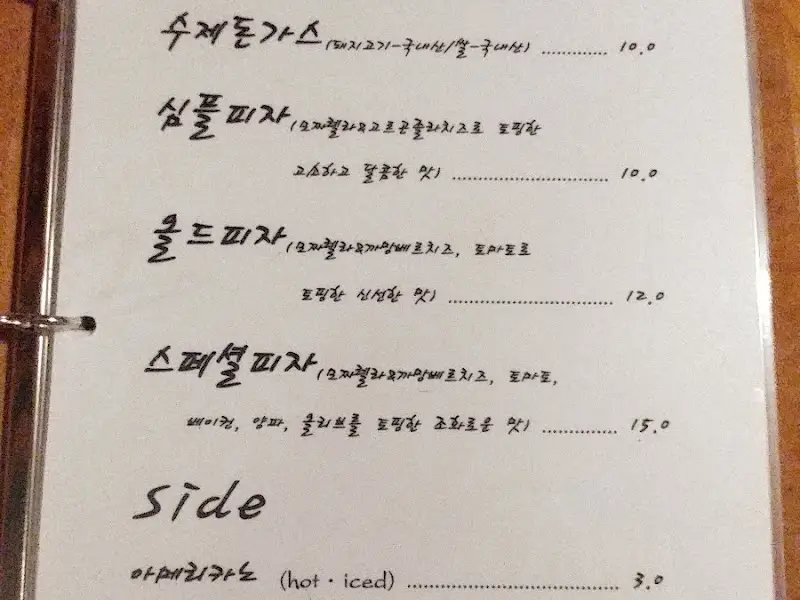 수제돈가스(돼지고기-국내산/쌀-국내산) ............ 10.0
심플피자(모짜렐라&고르곤졸라치즈로 토핑한
고소하고 달콤한 맛) ............................ 10.0
올드피자(모짜렐라&까망베르치즈, 토마토로
토핑한 신선한 맛) ............................. 12.0
스페셜피자(모짜렐라&까망베르치즈, 토마토,
베이컨, 양파, 올리브를 토핑한 조화로운 맛) ............. 15.0
side
아메리카노 (hot · iced) ...................................... 3.0